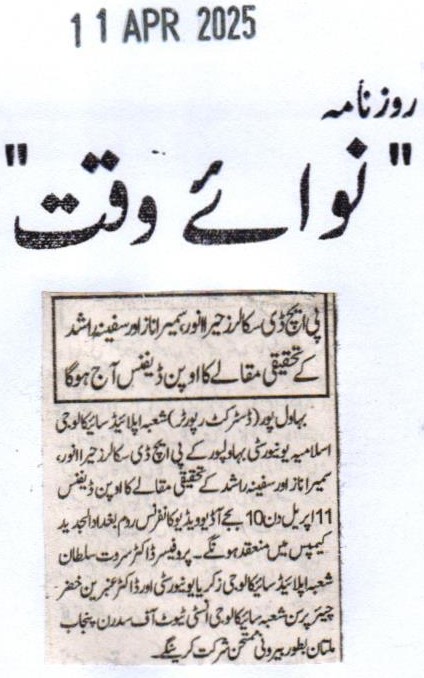 11 APR 2025
روزنامہ
"نوائے وقت"
پی ایچ ڈی سکالرز حیرا انور، سمیرا ناز اور سفینہ راشد
کے تحقیقی مقالے کا اوپن ڈیفنس آج ہوگا
بہاول پور (ڈسٹرکٹ رپورٹر) شعبہ اپلائیڈ سائیکالوجی
اسلامیہ یونیورسٹی بہاولپور کے پی ایچ ڈی سکالرز حیرا انور،
سمیرا ناز اور سفینہ راشد کے تحقیقی مقالے کا اوپن ڈیفنس
11 اپریل دن 10 بجے آڈیو ویڈیو کانفرنس روم بغداد الجدید
کیمپس میں منعقد ہونگے۔ پروفیسر ڈاکٹر سروت سلطان
شعبہ اپلائیڈ سائیکالوجی زکریا یونیورسٹی اور ڈاکٹر عنبرین خضر
چیئر پرسن شعبہ سائیکالوجی انسٹی ٹیوٹ آف سدرن پنجاب
ملتان بطور بیرونی ممتحن شرکت کرینگے۔